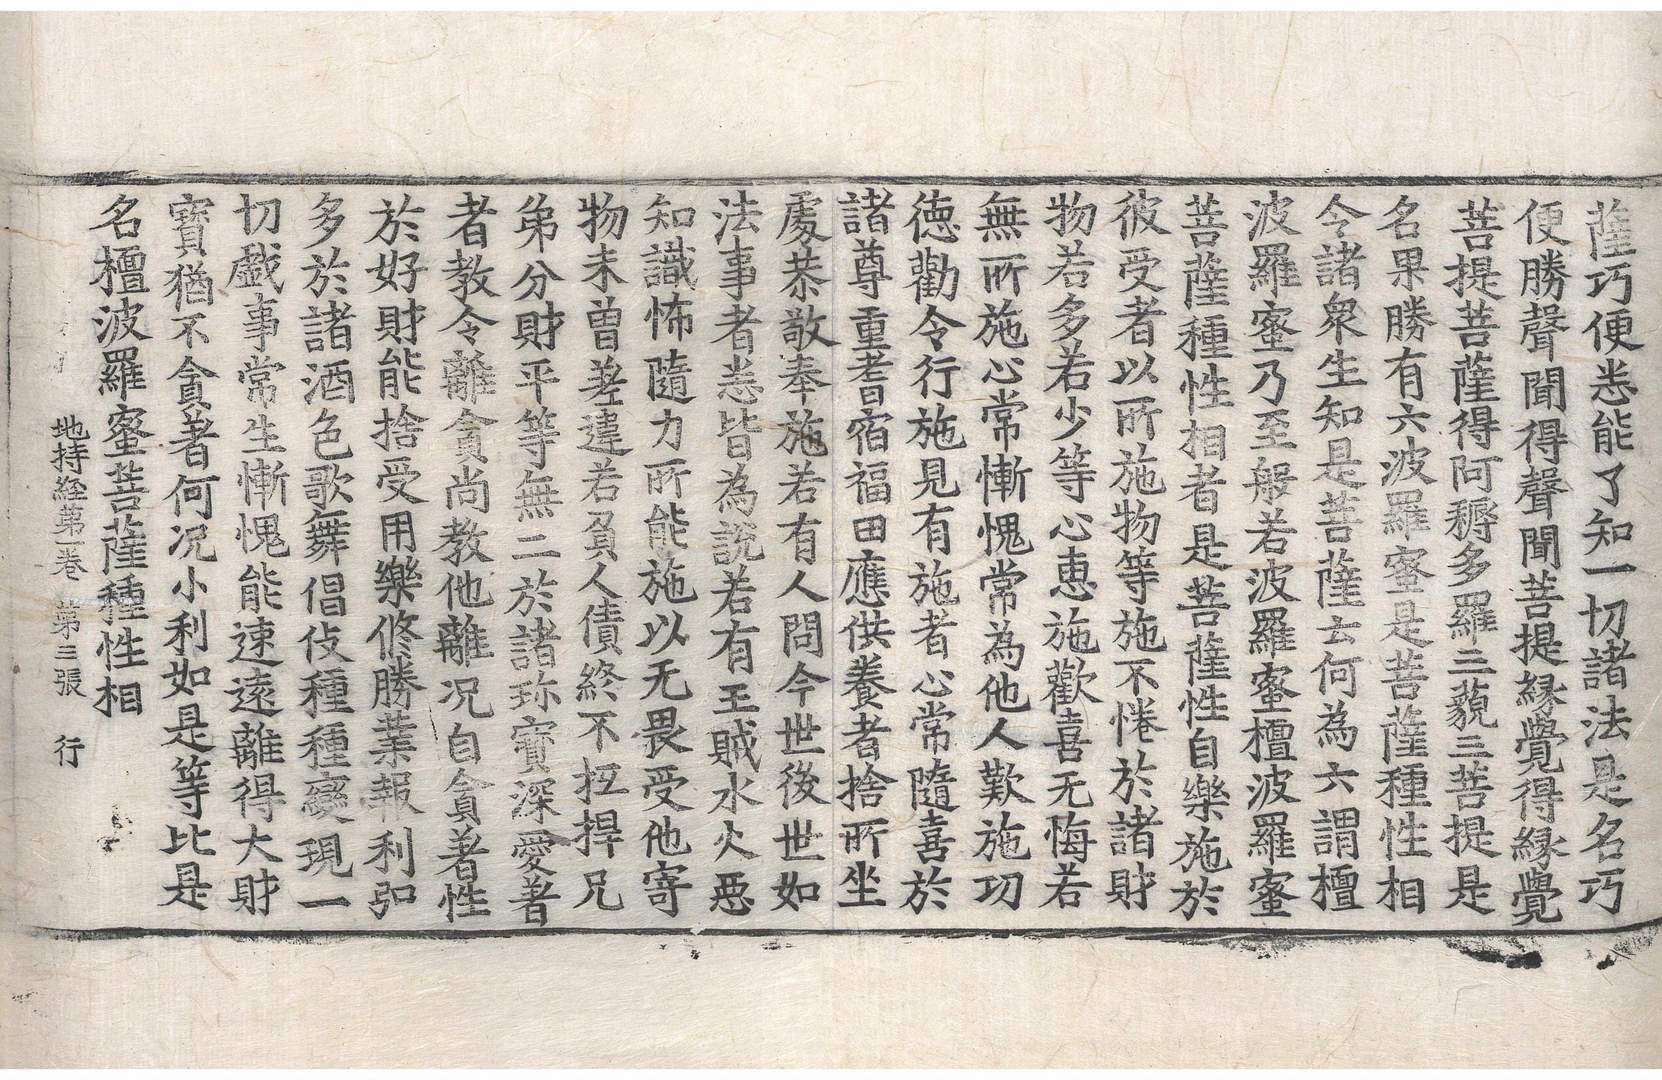 薩巧便悉能了知一切諸法是名巧
便勝聲聞得聲聞菩提縁覺得縁覺
菩提菩薩得阿耨多羅三藐三菩提是
名果勝有六波羅蜜是菩薩種性相
令諸衆生知是菩薩云何為六謂檀
波羅蜜乃至般若波羅蜜檀波羅蜜
菩薩種性相者是菩薩性自樂施於
彼受者以所施物等施不惓於諸財
物若多若少等心惠施歡喜无悔若
無所施心常慚愧常為他人歎施功
德勸令行施見有施者心常隨喜於
諸尊重耆宿福田應供養者捨所坐
處恭敬奉施若有人問今世後世如
法事者悉皆為説若有王賊水火惡
知識怖隨力所能施以无畏受他寄
物未曽差違若負人債終不抂捍兄
弟分財平等無二於諸珎寳深愛著
者教令離貪尚教他離况自貪著性
於好財能捨受用樂修勝業報利弘
多於諸酒色歌舞倡伎種種變現一
切戯事常生慚愧能速遠離得大財
寳猶不貪著何况小利如是等比是
名檀波羅蜜菩薩種性相
地持経第一巻 第三張 行